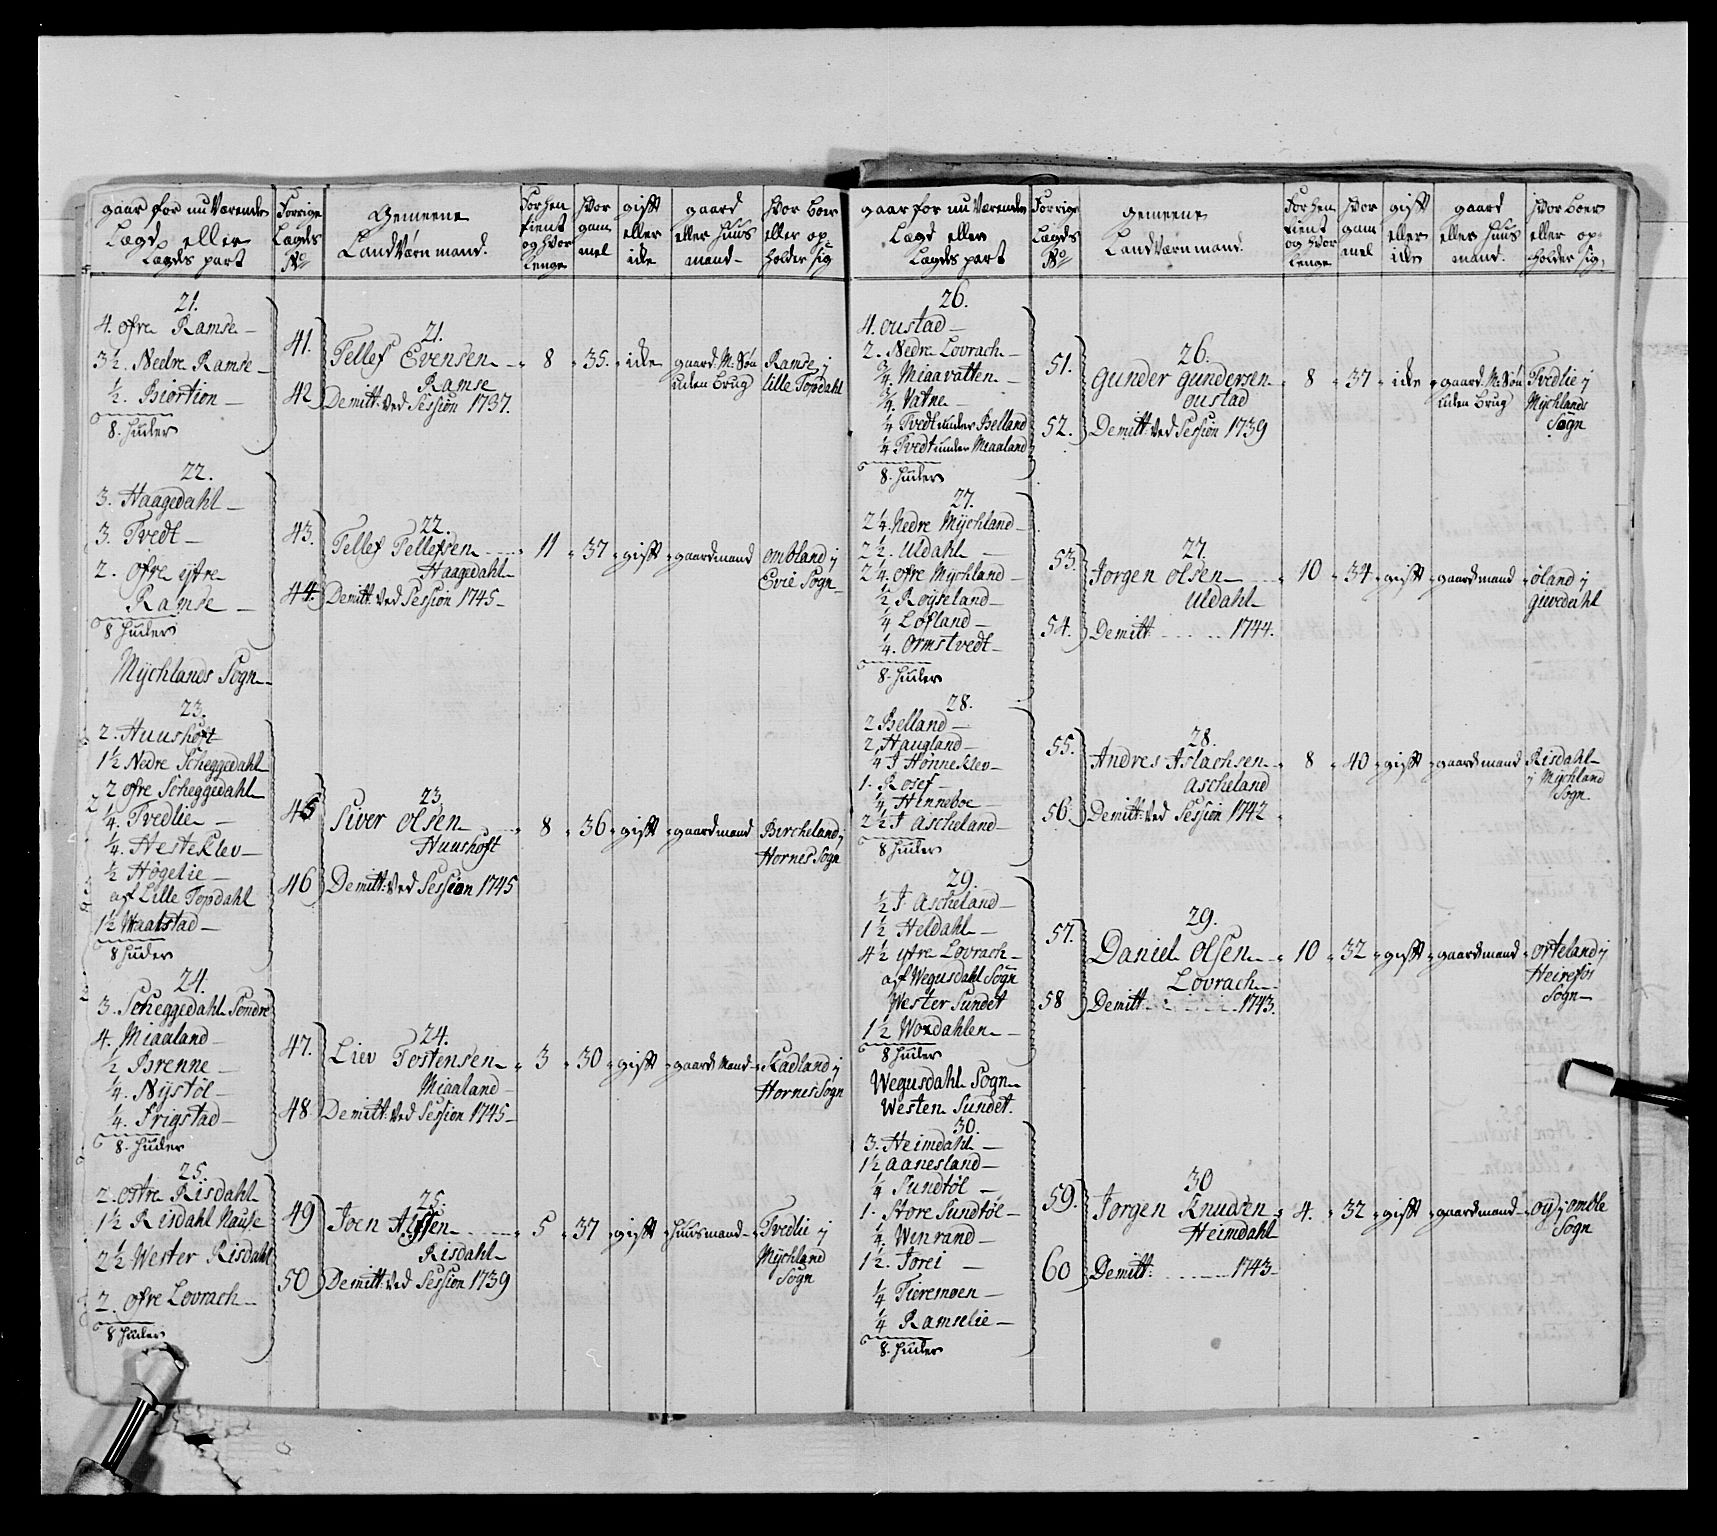 gaar for nu Værende
Lægd eller
Lægds part
Forrige
Lægds
No
Gemeene
LandVærn mand.
Forhen
tient
og hvor
lenge
Hvor
gam
mel
gift
eller
icke
gaard
eller Huus
mand
Hvor boer
eller op
holder sig
21.
4. Øfre Ramse
3½. Nedre Ramse
½. Biørtion
8. Huder
41.
42
21.
Tellef Evensen
Ramse
Demitt: ved Session 1737.
8
35.
icke
gaard M: Søn
uden brug
Ramse j
lille Topdahl
22.
3. Haagedahl
3. Tvedt
2. Øfre ytre
Ramse
8 Huder
43.
44.
22.
Tellef Tellefsen
Haagedahl
Demitt: ved Session 1745
11
37
gift
gaardmand
Ombland j
Evie Sogn
Mychlands Sogn
23.
2. Huushoft
1½ Nedre Scheggedahl
2 Øfre Scheggedahl
¼. Tvedlie
¼. Hesteklev
½ Høgelie
af Lille Topdahl
1½ Waatstad
8 Huder
45
46
23.
Siver Olsen
Huushoft
Demitt: ved Session 1745
8
36
gift
gaardmand
Bircheland j
Hornes Sogn
24.
3. Scheggedahl Søndre
4. Miaaland
½ Brenne
¼. Nystøl
¼. Frigstad
8. Huder
47.
48
24.
Liev Tostensen
Miaaland
Demitt: ved Session 1745
3
30
gift
gaard Mand
Kadland j
Hornes Sogn
25.
2. Østre Risdahl
1½ Risdahl Nause
2½ Wester Risdahl
2. Øfre Lovrach
8 Huder
49
50
25.
Joen
Risdahl
Demitt: ved Session 1739
5
37
gift
Huusmand
Tvedlie j
Mychland
Sogn
gaar for nu Værende
Lægd eller
Lægds part
Forrige
Lægds
No
gemeene
Landværn mand.
Forhen
tient
og hvor
lenge
Hvor
gam
mel
gift
eller
icke
gaard
eller Huus
mand.
Hvor boer
eller op-
holder sig.
26.
4. Oustad
2. Nedre Lovrach
¾. Miaavatten
¾. Vatne
¼ Tvedt under Belland
¼ Tvedt under Miaaland
8. Huder
51.
52.
26.
Gunder Gundersen
Oustad
Demitt: ved Session 1739
8
37
icke
gaard M: Søn
uden brug
Tvedlie j
Mychlands
Sogn
27.
2¼. Nedre Mychland
2½. Uldahl
2¼. Øfre Mychland
½ Røyseland
¼ Lofland
¼. Ormstvedt
8. Huder
53.
54.
27.
Jørgen Olsen
Uldahl
Demitt: 1744.
10
34
gift
gaardmand
Øland j
Givedahl
28.
2 Belland
2 Haugland
¼ J Hønneklev
1. Rosef
¼ Henneboe
2½ J Ascheland
8 Huder
55.
56.
28.
Andres Aslachsen
Ascheland
Demitt: ved Session 1742
8
40
gift
gaardmand
Risdahl
j Mychland
Sogn
29.
½ J Ascheland
1½ Heldahl
4½ ytre Lovrach
af Wegusdahl Sogn
Wester Sundet
1½ Wordahlen
8 Huder
57.
58
29.
Daniel Olsen
Lovrach
Demitt: 1743.
10
32
gift
gaardmand
Orteland j
Heirefos
Sogn
Wegusdahl Sogn
Westen Sundet.
30.
3. Heimdahl
1½ Aanesland
¼ Sundtøl
1. Store Sundtøl
¼. Winrand
1½. Jorei
¼ Tieremoen
¼ Ramselie
8. Huder
59.
60
30
Jørgen Knudsen
Heimdahl
Demitt: 1743
4.
32
gift
gaardmand
Oy j Omble
Sogn